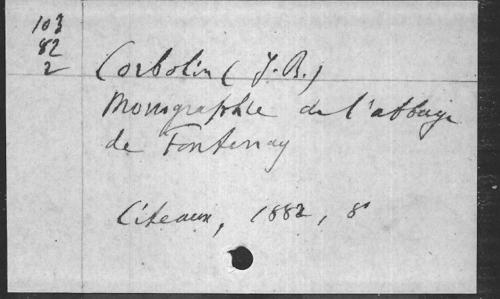 103
82
2
Corbolin (J. B.)
Monographie de l'abbaye
de Fontenay
Citeaux, 1882, 8°